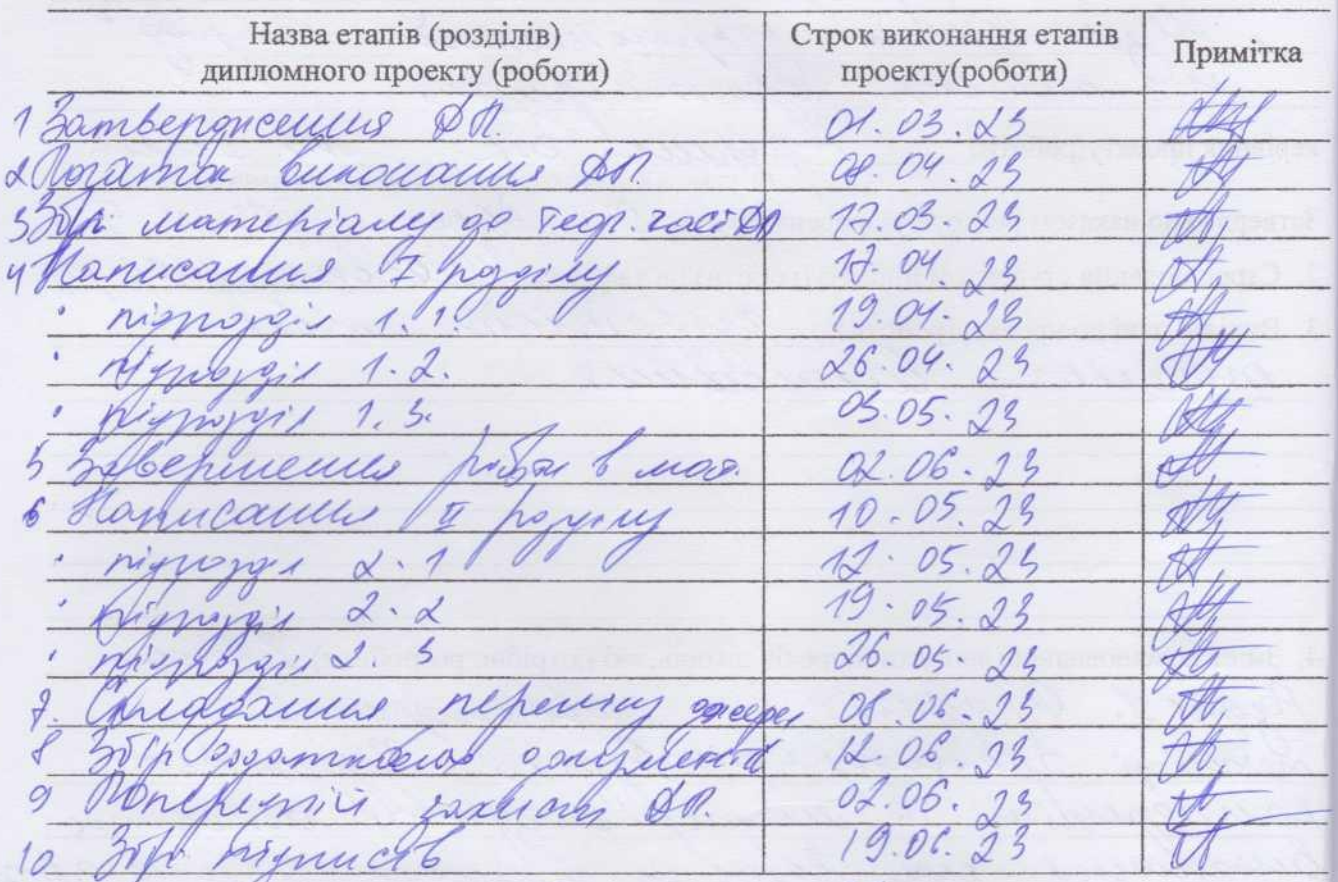 Назва етапів (розділів) дипломного проекту (роботи) Строк виконання етапів проекту(роботи) Примітка
1 Затвердження ДП. 01.03.23
2 Початок виконання ДП. 08.04.23
3 Збір матеріалу до теор. част ДП 17.03.23
4 Написання I розділу 17.04.23
· підрозділ 1.1. 19.04.23
· підрозділ 1.2. 26.04.23
· підрозділ 1.3. 03.05.23
5 Завершення роботи в 02.06.23
6 Написання II розділу 10.05.23
· підрозділ 2.1 12.05.23
· підрозділ 2.2 19.05.23
· підрозділ 2.3 26.05.23
7. Складання переліку джерел 08.06.23
8 Збір додаткових документів 12.06.23
9 Попередній захист ДП. 02.06.23
10 Збір підписів 19.06.23